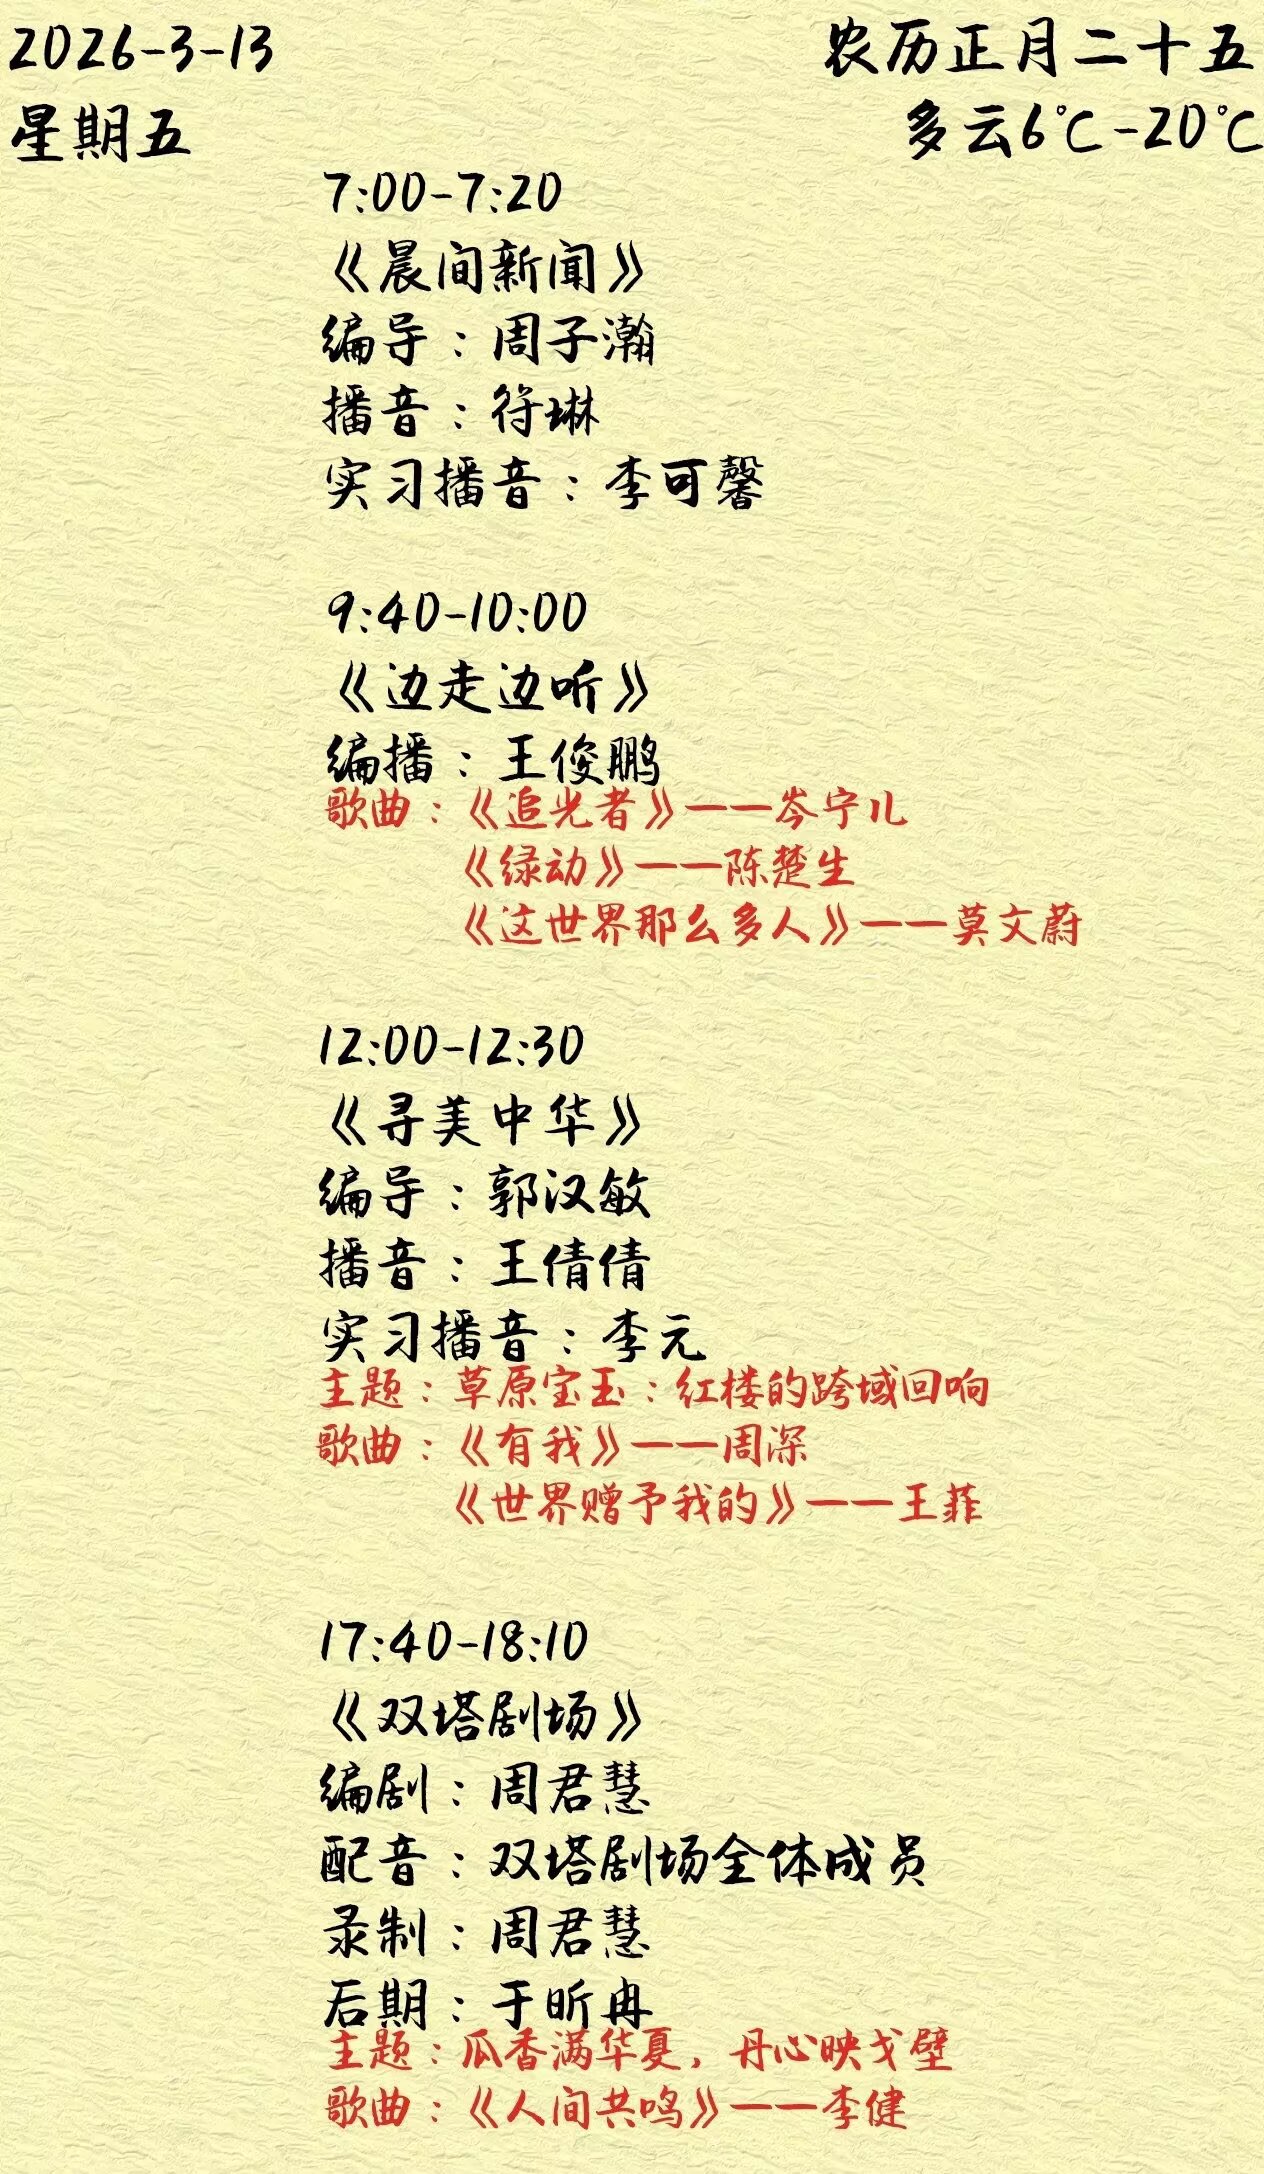 2026-3-13
农历正月二十五
星期五
多云6℃-20℃
7:00-7:20
《晨间新闻》
编导：周子瀚
播音：符琳
实习播音：李可馨
9:40-10:00
《边走边听》
编播：王俊鹏
歌曲：《追光者》——岑宁儿
《绿动》——陈楚生
《这世界那么多人》——莫文蔚
12:00-12:30
《寻美中华》
编导：郭汉敏
播音：王倩倩
实习播音：李元
主题：草原宝玉：红楼的跨域回响
歌曲：《有我》——周深
《世界赠予我的》——王菲
17:40-18:10
《双塔剧场》
编剧：周君慧
配音：双塔剧场全体成员
录制：周君慧
后期：于昕冉
主题：瓜香满华夏，丹心映戈壁
歌曲：《人间共鸣》——李健